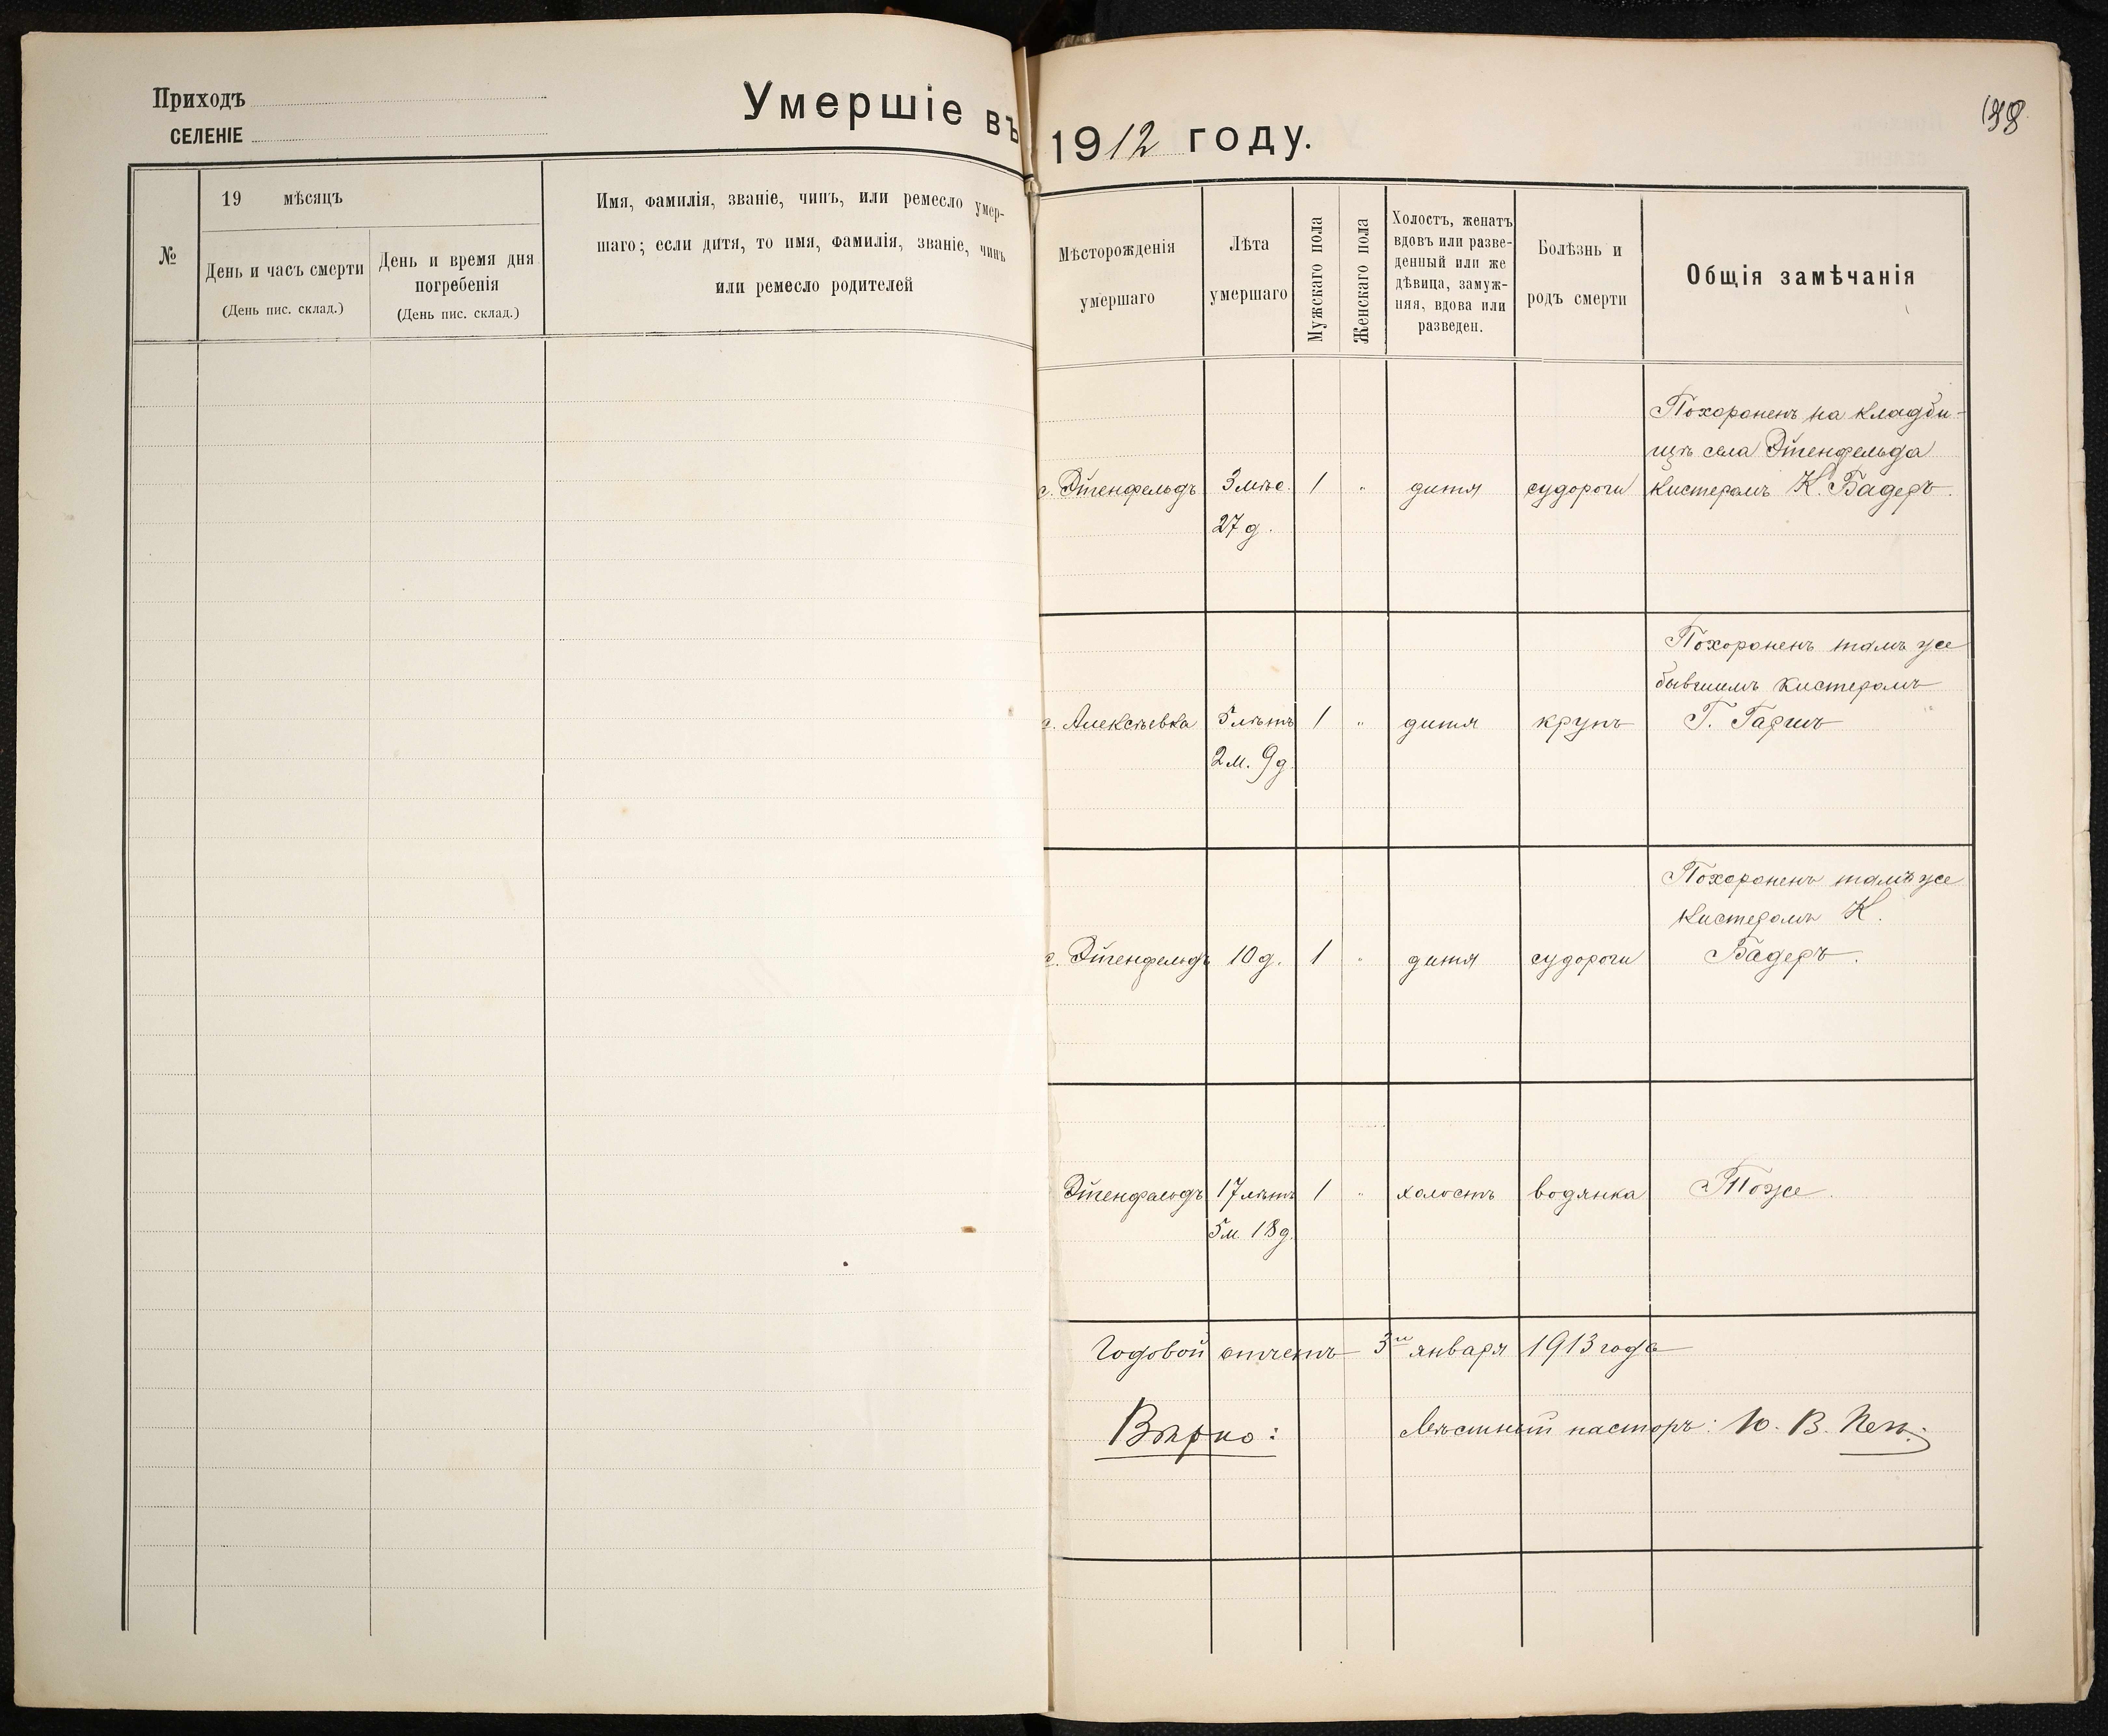 Приходъ
СЕЛЕНІЕ
Умершіе въ 1912 году.
138
№
19 мѣсяцъ
День и часъ смерти
(День пис. склад.)
День и время дня
погребенія
(День пис. склад.)
Имя, фамилія, званіе, чинъ, или ремесло умер-
шаго; если дитя, то имя, фамилія, званіе, чинъ
или ремесло родителей
Мѣсторожденія
умершаго
Лѣта
умершаго
Мужскаго пола
Женскаго пола
Холостъ, женатъ
вдовъ или разве-
денный или же
дѣвица, замуж-
няя, вдова или
разведен.
Болѣзнь и
родъ смерти
Общія замѣчанія
Похороненъ на кладби-
щѣ села Эйгенфельда
с. Эйгенфельдъ 3 мѣс. 1 " дитя судороги кистеромъ К. Бадеръ.
27 д.
Похороненъ тамъ же
бывшимъ кистеромъ
с. Алексѣевка 5 лѣтъ 1 " дитя крупъ Г. Гаршъ
2 м. 9 д.
Похороненъ тамъ же
кистеромъ К.
с. Эйгенфельдъ 10 д. 1 " дитя судороги Бадеръ.
Эйгенфельдъ 17 лѣтъ 1 " холостъ водянка Тоже.
5 м. 18 д.
Годовой отчетъ 3го января 1913 года
Вѣрно: Мѣстный пасторъ: Ю. В.